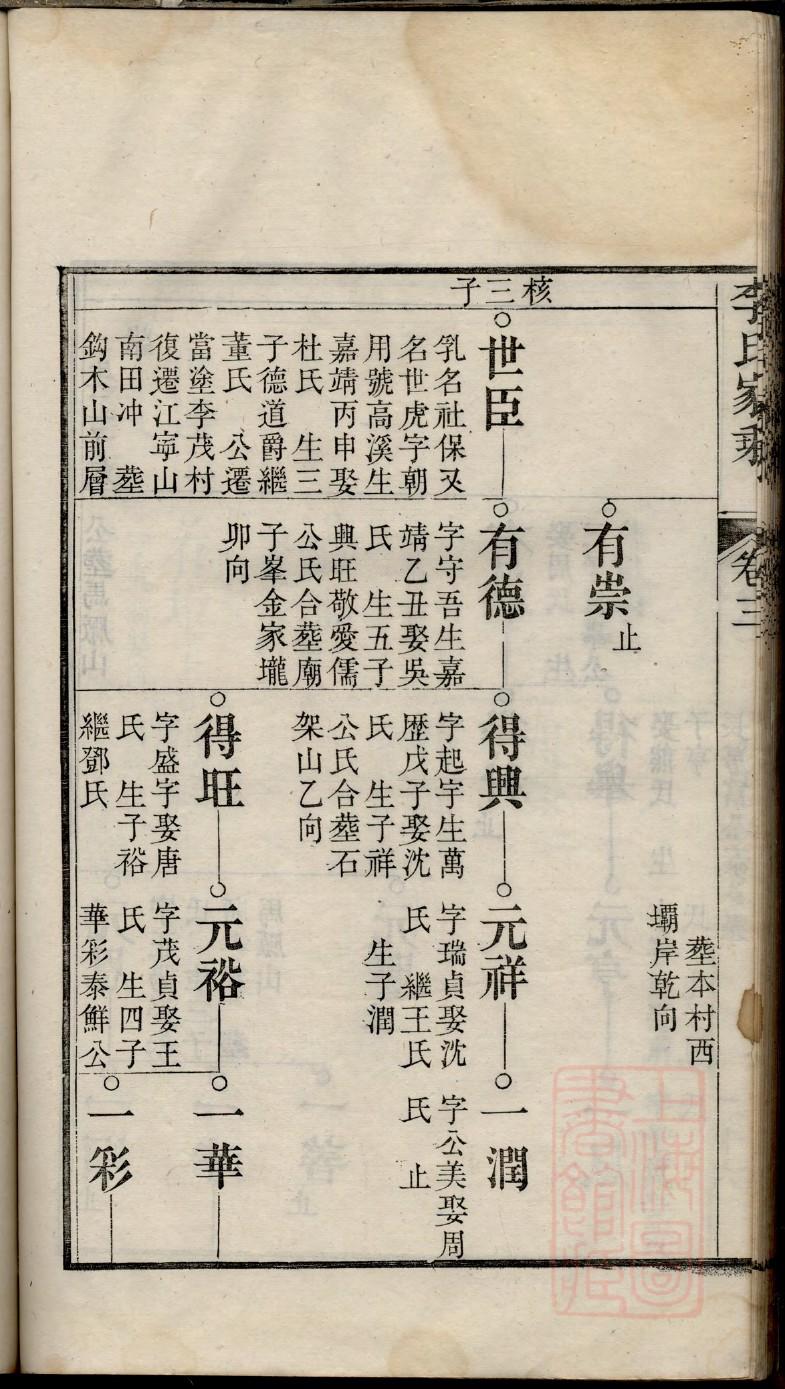 李氏家乘
卷三
核三子
世臣
乳名社保又
名世虎字朝
用號高溪生
嘉靖丙申娶
杜氏　生三
子德道爵繼
董氏　公遷
當塗李茂村
復遷江寧山
南田冲　塟
鈎木山前層
有崇
止
有德
字守吾生嘉
靖乙丑娶吳
氏　生五子
興旺敬愛儒
公氏合塟廟
子峯金家壠
卯向
得興
字起字生萬
歷戊子娶沈
氏　生子祥
公氏合塟石
架山乙向
得旺
字盛字娶唐
氏　生子裕
繼鄧氏
塟本村西
壩岸乾向
元祥
字瑞貞娶沈
氏　繼王氏
生子潤
元裕
字茂貞娶王
氏　生四子
華彩泰鮮公
一潤
字公美娶周
氏　止
一華
一彩
上海圖書館藏